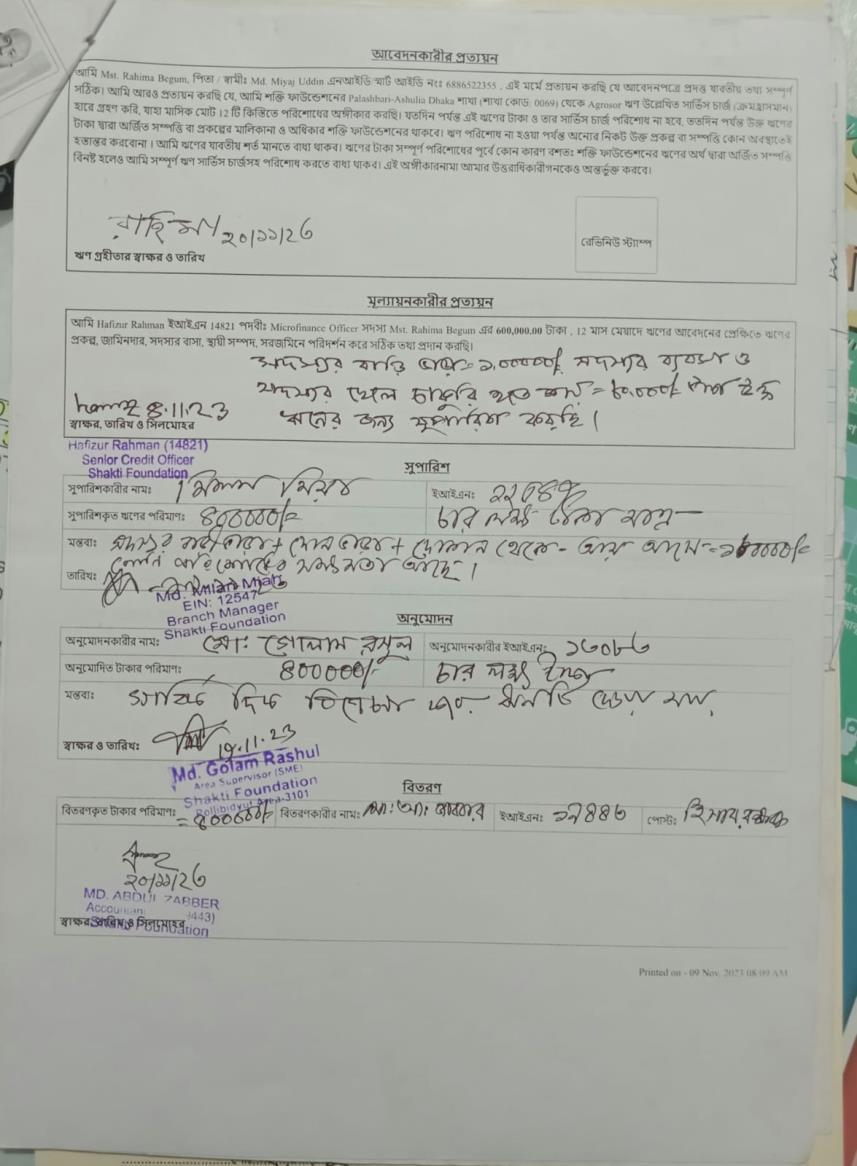 আবেদনকারীর প্রত্যয়ন
আমি Mst. Rahima Begum, পিতা / স্বামীঃ Md. Miyaj Uddin এনআইডি/স্মার্ট আইডি নংঃ 6886522355 , এই মর্মে প্রত্যয়ন করছি যে আবেদনপত্রে প্রদত্ত যাবতীয় তথ্য সম্পূর্ণ
সঠিক। আমি আরও প্রত্যয়ন করছি যে, আমি শক্তি ফাউন্ডেশনের Palashbari-Ashulia Dhaka শাখা (শাখা কোড: 0069) থেকে Agrosor ঋণ উল্লেখিত সার্ভিস চার্জ (ক্রমহ্রাসমান)
হারে গ্রহণ করি, যাহা মাসিক মোট 12 টি কিস্তিতে পরিশোধের অঙ্গীকার করছি। যতদিন পর্যন্ত এই ঋণের টাকা ও তার সার্ভিস চার্জ পরিশোধ না হবে, ততদিন পর্যন্ত উক্ত ঋণের
টাকা দ্বারা অর্জিত সম্পত্তি বা প্রকল্পের মালিকানা ও অধিকার শক্তি ফাউন্ডেশনের থাকবে। ঋণ পরিশোধ না হওয়া পর্যন্ত অন্যের নিকট উক্ত প্রকল্প বা সম্পত্তি কোন অবস্থাতেই
হস্তান্তর করবোনা । আমি ঋণের যাবতীয় শর্ত মানতে বাধ্য থাকব। ঋণের টাকা সম্পূর্ণ পরিশোধের পূর্বে কোন কারণ বশতঃ শক্তি ফাউন্ডেশনের ঋণের অর্থ দ্বারা অর্জিত সম্পত্তি
বিনষ্ট হলেও আমি সম্পূর্ণ ঋণ সার্ভিস চার্জসহ পরিশোধ করতে বাধ্য থাকব। এই অঙ্গীকারনামা আমার উত্তরাধিকারীগনকেও অন্তর্ভূক্ত করবে।
রাহিমা ২০/১১/২৩
রেভিনিউ স্ট্যাম্প
ঋণ গ্রহীতার স্বাক্ষর ও তারিখ
মূল্যায়নকারীর প্রত্যয়ন
আমি Hafizur Rahman ইআইএন 14821 পদবীঃ Microfinance Officer সদস্য Mst. Rahima Begum এর 600,000.00 টাকা , 12 মাস মেয়াদে ঋণের আবেদনের প্রেক্ষিতে ঋণের
প্রকল্প, জামিনদার, সদস্যের বাসা, স্থায়ী সম্পদ, সরজমিনে পরিদর্শন করে সঠিক তথ্য প্রদান করছি।
সদস্যের বাড়ি ভাড়া= ১,00000/ সদস্যের ব্যবসা ও
সদস্যের ছেলে চাকুরি হতে আয় = ৮০,000/
8.11.23 ঋনের জন্য সুপারিশ করছি।
স্বাক্ষর, তারিখ ও সিলমোহর
Hafizur Rahman (14821)
Senior Credit Officer
Shakti Foundation
সুপারিশ
সুপারিশকারীর নাম: মিলন মিয়া ইআইএন:
সুপারিশকৃত ঋণের পরিমাণ: ৪00000/= চার লক্ষ টাকা মাত্র
মন্তব্য: সদস্যর বাড়ী ভাড়া + দোকান ভাড়া + দোকান থেকে আয় আসে=
তারিখ: আছে।
Md. Milan Miah
EIN: 12547
Branch Manager
Shakti Foundation
অনুমোদন
অনুমোদনকারীর নাম: মো: গোলাম রসুল অনুমোদনকারীর ইআইএন: ১৩০৮৬
অনুমোদিত টাকার পরিমাণ: ৪00000/- চার লক্ষ টাকা
মন্তব্য: সার্বিক দিক বিবেচনা
স্বাক্ষর ও তারিখঃ 19.11.23
Md. Golam Rashul
Area Supervisor (SME)
Shakti Foundation
বিতরণ
বিতরণকৃত টাকার পরিমাণ: =৪00000/ বিতরণকারীর নাম: মো: আ: জাব্বার ইআইএন: ১২৪৪৩ পোস্ট: হিসাব রক্ষক
২০/১১/২৩
MD. ABDUL ZABBER
Accountant
স্বাক্ষর তারিখ ও সিলমোহর
Shakti Foundation
Printed on - 09 Nov, 2023 08:09 AM